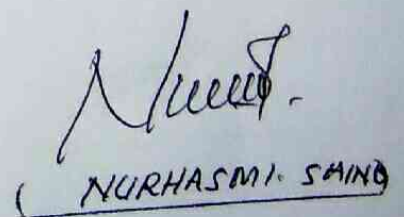 ( NURHASMI. SAING